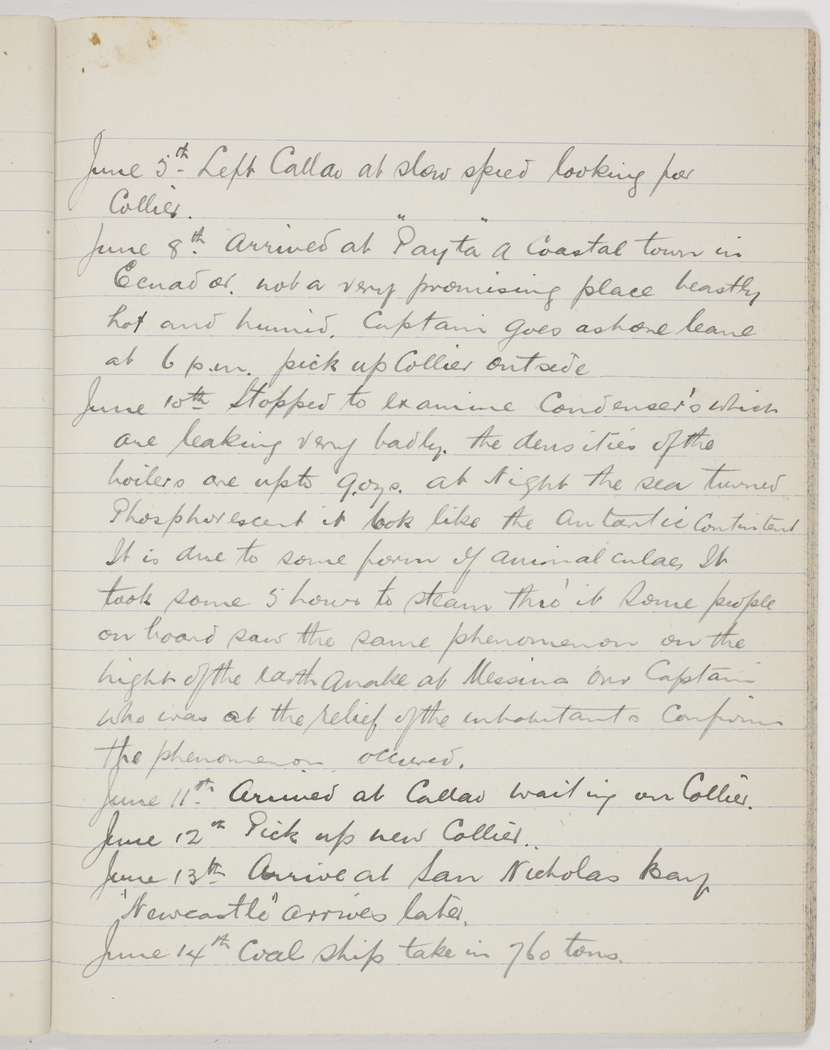 June 5th Left Callao at slow speed looking for
Collier.
June 8th Arrived at "Payta" a Coastal town in
Ecuador. not a very promising place beastly
hot and humid. Captain goes ashore leave
at 6 p.m. pick up Collier outside
June 10th Stopped to examine Condenser's which
are leaking very badly. the densities of the
boilers are upto 9.ozs. at Night the sea turned
Phosphorescent it look like the Antartic Contintent
It is due to some form of animalculae, It
took some 5 hours to steam thro' it Some people
on board saw the same phenomenon on the
night of the earth Quake at Messina Our Captain
who was at the relief of the inhabitants Confirms
the phenomenon occured.
June 11th Arrived at Callao waiting on Collier.
June 12th Pick up new Collier..
June 13th Arrive at San Nicholas Bay
'Newcastle' arrives later.
June 14th Coal ship take in 760 tons.